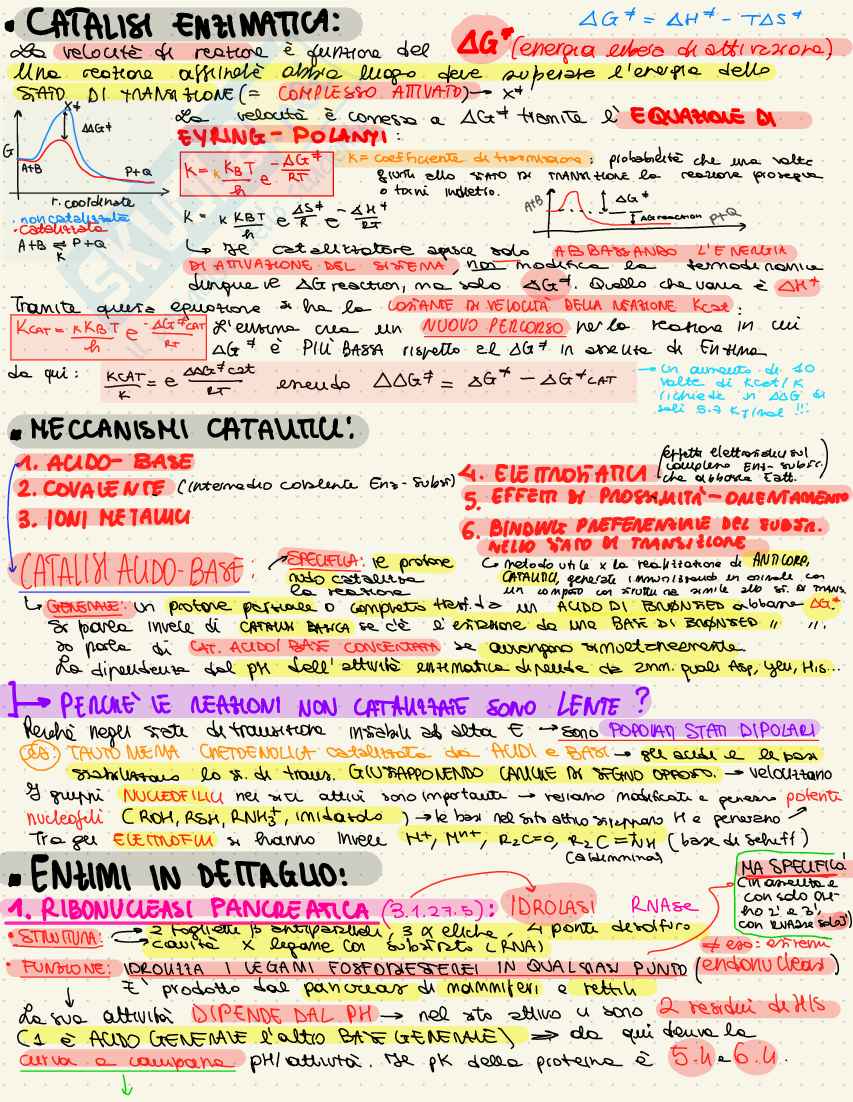 • CATALISI ENZIMATICA:
ΔG≠ = ΔH≠ - TΔS≠
La velocità di reazione è funzione del ΔG≠ (energia libera di attivazione)
Una reazione affinché abbia luogo deve superare l'energia dello
STATO DI TRANSIZIONE (= COMPLESSO ATTIVATO) → X≠
La velocità è connessa a ΔG≠ tramite l' EQUAZIONE DI
EYRING-POLANYI:
G
X≠
ΔΔG≠
A+B
P+Q
r. coordinate
• non catalizzata
• catalizzata
A+B ⇌ P+Q
K
K = κ KBT/h e -ΔG≠/RT
K = coefficiente di trasmissione: probabilità che una volta
giunti allo STATO DI TRANSIZIONE la reazione prosegua
o torni indietro.
K = κ KBT/h e ΔS≠/R e -ΔH≠/RT
A+B
ΔG≠
ΔG reaction
P+Q
↳ Il catalizzatore agisce solo ABBASSANDO L'ENERGIA
DI ATTIVAZIONE DEL SISTEMA, non modifica la termodinamica
dunque il ΔG reaction, ma solo ΔG≠. Quello che varia è ΔH≠
Tramite questa equazione si ha la COSTANTE DI VELOCITÀ DELLA REAZIONE Kcat:
KCAT = κ KBT/h e -ΔG≠CAT/RT
L'enzima crea un NUOVO PERCORSO per la reazione in cui
ΔG≠ è PIÙ BASSA rispetto al ΔG≠ in assenza di Enzima
da qui: KCAT/K = e ΔΔG≠cat/RT essendo ΔΔG≠ = ΔG≠ - ΔG≠CAT
→ un aumento di 10
volte di Kcat/K
richiede un ΔΔG di
soli 5.7 KJ/mol !!!
• MECCANISMI CATALITICI:
1. ACIDO-BASE
2. COVALENTE (intermedio covalente Enz-subst)
3. IONI METALLICI
4. ELETTROSTATICA (effetti elettrostatici sul
complesso Enz-substr.
che abbassa Eatt.)
5. EFFETTI DI PROSSIMITÀ-ORIENTAMENTO
6. BINDING PREFERENZIALE DEL SUBSTR.
NELLO STATO DI TRANSIZIONE
↳ metodo utile x la realizzazione di ANTICORPI
CATALITICI, generati immunizzando un animale con
un composto con struttura simile allo st. di trans.
CATALISI ACIDO-BASE:
→ SPECIFICA: il protone
nudo catalizza
la reazione
↳ GENERALE: un protone parziale o completo trasf. da un ACIDO DI BRØNSTED abbassa ΔG≠.
Si parla invece di CATALISI BASICA se c'è l'estrazione da una BASE DI BRØNSTED " ".
Si parla di CAT. ACIDO/BASE CONCERTATA se avvengono simultaneamente
La dipendenza dal pH dell'attività enzimatica dipende da amm. quali Asp, Glu, His...
→ PERCHÉ LE REAZIONI NON CATALIZZATE SONO LENTE?
Perché negli stati di transizione instabili ad alta E → sono POPOLATI STATI DIPOLARI
ES: TAUTOMERIA CHETOENOLICA catalizzata da ACIDI e BASI → gli acidi e le basi
stabilizzano lo st. di trans. GIUSTAPPONENDO CARICHE DI SEGNO OPPOSTO. → velocizzano
I gruppi NUCLEOFILICI nei siti attivi sono importanti → vengono modificati e generano potenti
nucleofili (ROH, RSH, RNH3+, imidazolo) → le basi nel sito attivo strappano H e generano ↗
Tra gli ELETTROFILI si hanno invece H+, Mn+, R2C=O, R2C=N+H (base di schiff)
(aldimmina)
• ENZIMI IN DETTAGLIO:
1. RIBONUCLEASI PANCREATICA (3.1.27.5): IDROLASI RNAse
MA SPECIFICITÀ
con solo
2' e 3',
• STRUTTURA: → 2 foglietti β antiparalleli, 3 α eliche, 4 ponti disolfuro
cavità x legame col substrato (RNA)
• FUNZIONE: IDROLIZZA I LEGAMI FOSFODIESTEREI IN QUALSIASI PUNTO (endonucleasi)
≠ eso: estremi
È prodotto dal pancreas di mammiferi e rettili
↓
La sua attività DIPENDE DAL PH → nel sito attivo vi sono 2 residui di His
(1 è ACIDO GENERALE l'altro BASE GENERALE) ⇒ da qui deriva la
curva a campana pH/attività. Il pK della proteina è 5.4 e 6.4.
↓